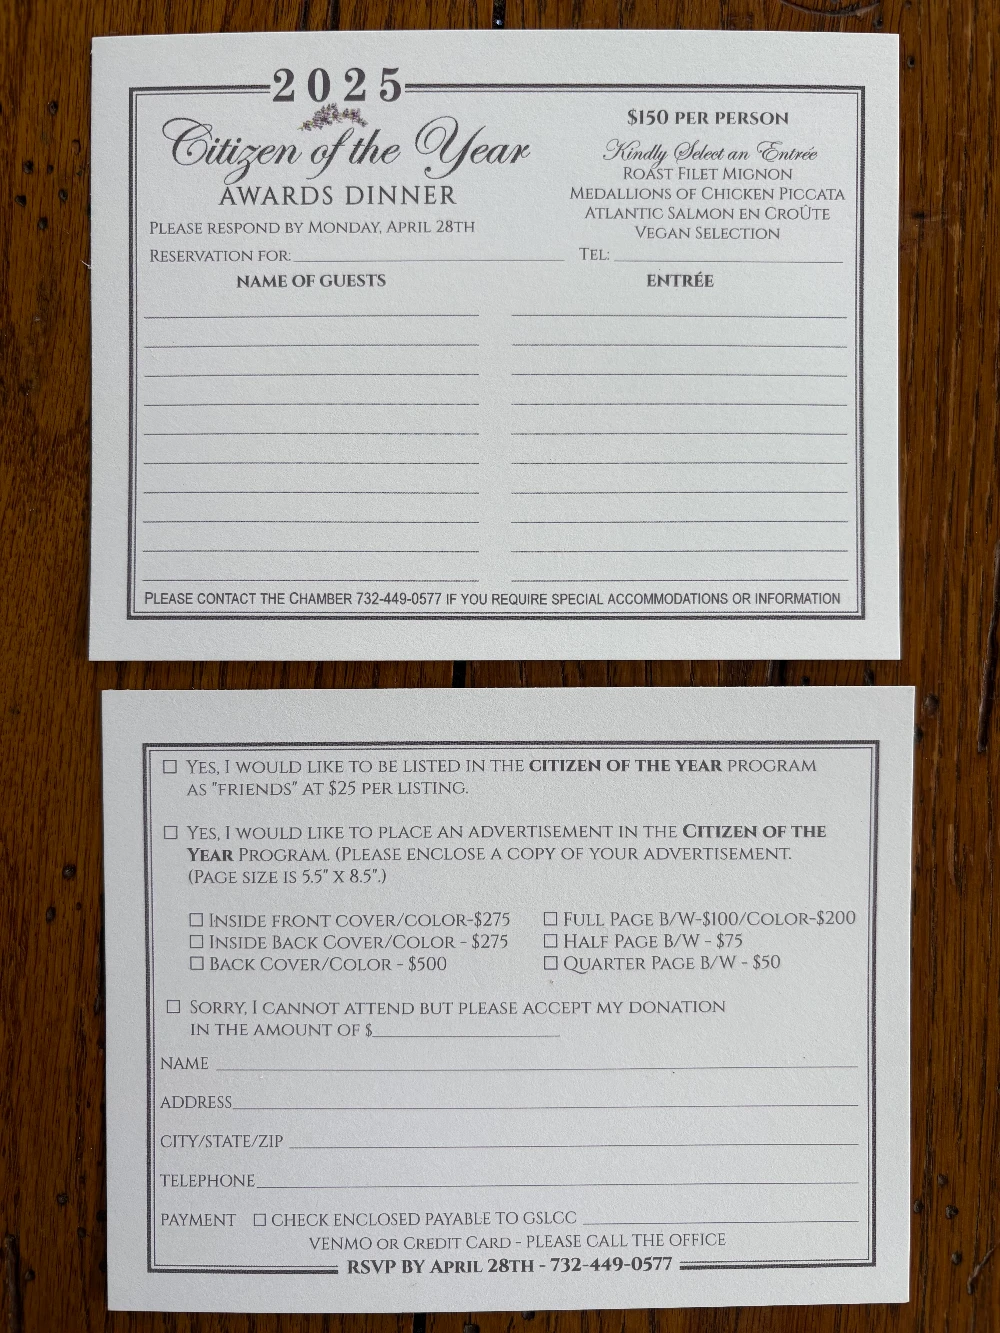 2025
Citizen of the Year
AWARDS DINNER
PLEASE RESPOND BY MONDAY, APRIL 28TH
$150 PER PERSON
Kindly Select an Entrée
ROAST FILET MIGNON
MEDALLIONS OF CHICKEN PICCATA
ATLANTIC SALMON EN CROÛTE
VEGAN SELECTION
RESERVATION FOR: TEL:
NAME OF GUESTS ENTRÉE
PLEASE CONTACT THE CHAMBER 732-449-0577 IF YOU REQUIRE SPECIAL ACCOMMODATIONS OR INFORMATION
☐ YES, I WOULD LIKE TO BE LISTED IN THE CITIZEN OF THE YEAR PROGRAM
AS "FRIENDS" AT $25 PER LISTING.
☐ YES, I WOULD LIKE TO PLACE AN ADVERTISEMENT IN THE CITIZEN OF THE
YEAR PROGRAM. (PLEASE ENCLOSE A COPY OF YOUR ADVERTISEMENT.
(PAGE SIZE IS 5.5" X 8.5".)
☐ INSIDE FRONT COVER/COLOR-$275 ☐ FULL PAGE B/W-$100/COLOR-$200
☐ INSIDE BACK COVER/COLOR - $275 ☐ HALF PAGE B/W - $75
☐ BACK COVER/COLOR - $500 ☐ QUARTER PAGE B/W - $50
☐ SORRY, I CANNOT ATTEND BUT PLEASE ACCEPT MY DONATION
IN THE AMOUNT OF $
NAME
ADDRESS
CITY/STATE/ZIP
TELEPHONE
PAYMENT ☐ CHECK ENCLOSED PAYABLE TO GSLCC
VENMO OR CREDIT CARD - PLEASE CALL THE OFFICE
RSVP BY APRIL 28TH - 732-449-0577